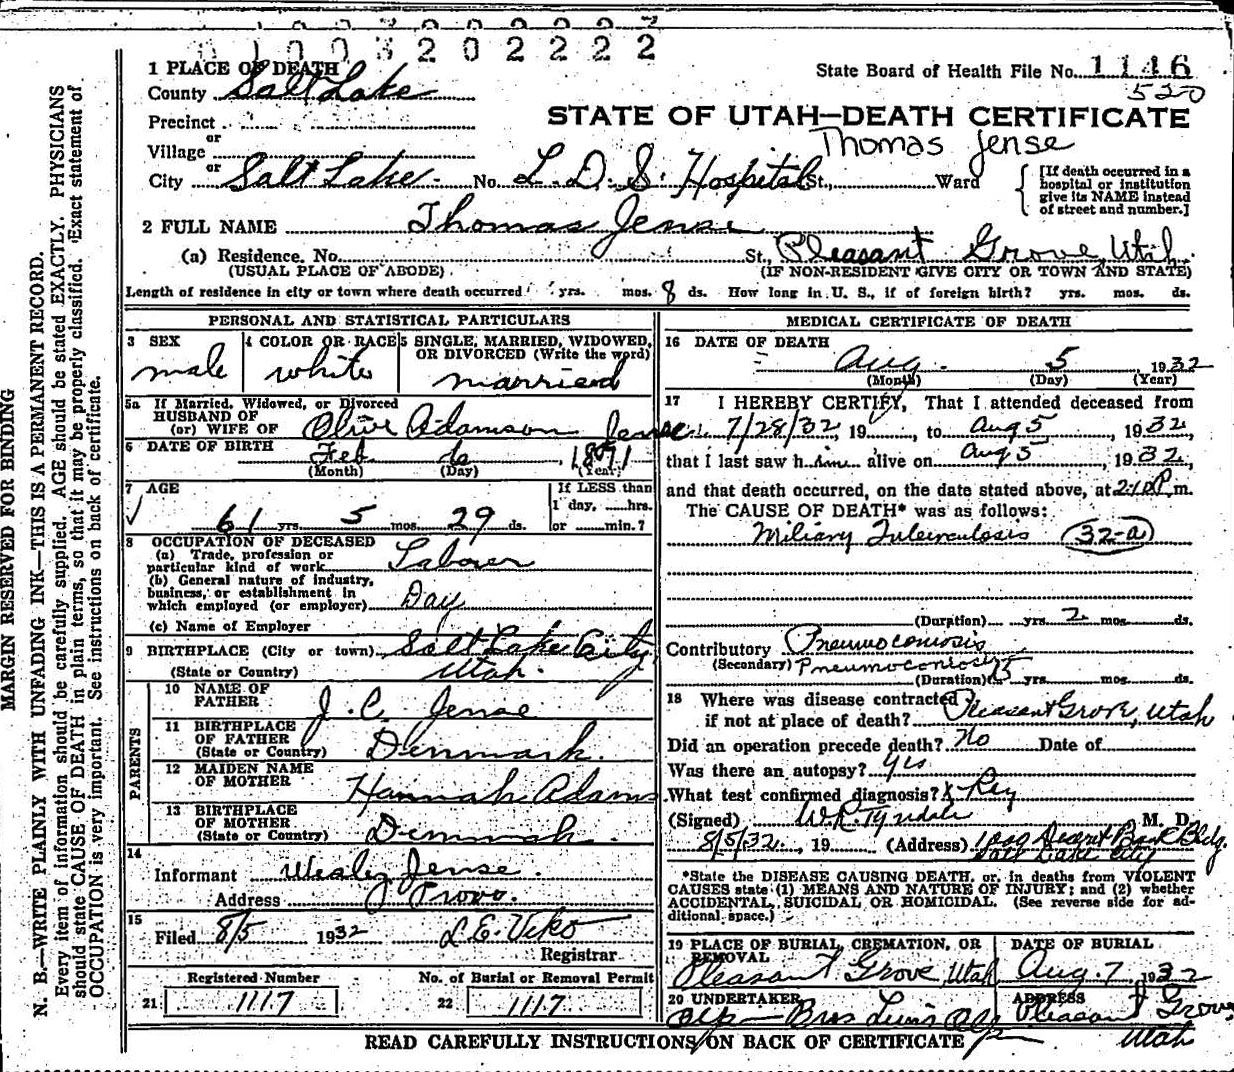 0100320222
1 PLACE OF DEATH
County Salt Lake
State Board of Health File No. 1146
520
STATE OF UTAH—DEATH CERTIFICATE
Thomas Jense
Precinct
or
Village
or
City Salt Lake. No. L. D. S. Hospital St., Ward
[If death occurred in a hospital or institution give its NAME instead of street and number.]
2 FULL NAME Thomas Jense
(a) Residence. No. St., Pleasant Grove, Utah.
(USUAL PLACE OF ABODE) (IF NON-RESIDENT GIVE CITY OR TOWN AND STATE)
Length of residence in city or town where death occurred yrs. mos. 8 ds. How long in U. S., if of foreign birth? yrs. mos. ds.
PERSONAL AND STATISTICAL PARTICULARS
3 SEX
male
4 COLOR OR RACE
white
5 SINGLE, MARRIED, WIDOWED, OR DIVORCED (Write the word)
married
5a If Married, Widowed, or Divorced
HUSBAND OF
(or) WIFE OF Olive Adamson Jense
6 DATE OF BIRTH Feb 6, 1871
(Month) (Day) (Year)
7 AGE
61 yrs. 5 mos. 29 ds.
If LESS than
1 day, hrs.
or min.?
8 OCCUPATION OF DECEASED
(a) Trade, profession or
particular kind of work Laborer
(b) General nature of industry,
business, or establishment in
which employed (or employer) Day
(c) Name of Employer
9 BIRTHPLACE (City or town) Salt Lake City,
(State or Country) Utah.
PARENTS
10 NAME OF
FATHER J. C. Jense
11 BIRTHPLACE
OF FATHER
(State or Country) Denmark.
12 MAIDEN NAME
OF MOTHER Hannah Adams
13 BIRTHPLACE
OF MOTHER
(State or Country) Denmark.
14
Informant Wesley Jense.
Address Provo.
15
Filed 8/5 1932 L. E. Viko
Registrar
Registered Number No. of Burial or Removal Permit
21 1117 22 1117
MEDICAL CERTIFICATE OF DEATH
16 DATE OF DEATH
Aug. 5 1932
(Month) (Day) (Year)
17 I HEREBY CERTIFY, That I attended deceased from
7/28/32, 19, to Aug 5, 1932,
that I last saw him alive on Aug 5, 1932,
and that death occurred, on the date stated above, at 2:10 P. m.
The CAUSE OF DEATH* was as follows:
Miliary Tuberculosis (32-a)
(Duration) yrs. 2 mos. ds.
Contributory Pneumoconiosis
(Secondary) Pneumoconiosis
(Duration) 15 yrs. mos. ds.
18 Where was disease contracted
if not at place of death? Pleasant Grove, Utah
Did an operation precede death? No Date of
Was there an autopsy? Yes
What test confirmed diagnosis? X-Ray
(Signed) W.R. Tyndale M. D.
8/5/32, 19 (Address) Bank Bldg.
Salt Lake City
*State the DISEASE CAUSING DEATH, or, in deaths from VIOLENT
CAUSES state (1) MEANS AND NATURE OF INJURY; and (2) whether
ACCIDENTAL, SUICIDAL OR HOMICIDAL. (See reverse side for ad-
ditional space.)
19 PLACE OF BURIAL, CREMATION, OR REMOVAL
Pleasant Grove, Utah
DATE OF BURIAL
Aug. 7, 1932
20 UNDERTAKER
Olpin Bros Olpin
ADDRESS
Pleasant Grove
Utah
READ CAREFULLY INSTRUCTIONS ON BACK OF CERTIFICATE
MARGIN RESERVED FOR BINDING
N. B.—WRITE PLAINLY WITH UNFADING INK—THIS IS A PERMANENT RECORD.
Every item of information should be carefully supplied. AGE should be stated EXACTLY. PHYSICIANS
should state CAUSE OF DEATH in plain terms, so that it may be properly classified. Exact statement of
OCCUPATION is very important. See instructions on back of certificate.